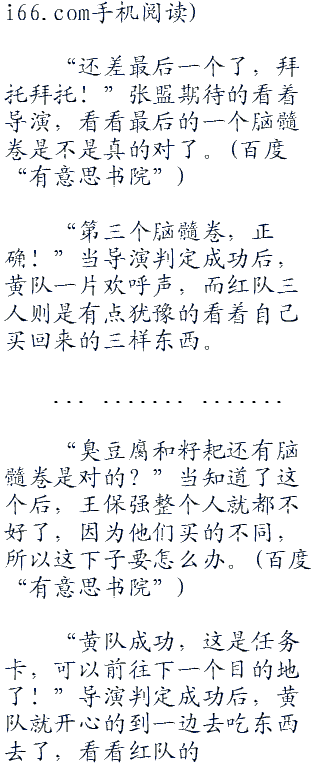 i66.com手机阅读)
“还差最后一个了，拜
托拜托！”张盟期待的看着
导演，看看最后的一个脑髓
卷是不是真的对了。(百度
“有意思书院”)
“第三个脑髓卷，正
确！”当导演判定成功后，
黄队一片欢呼声，而红队三
人则是有点犹豫的看着自己
买回来的三样东西。
... ....... .......
“臭豆腐和籽耙还有脑
髓卷是对的？”当知道了这
个后，王保强整个人就都不
好了，因为他们买的不同，
所以这下子要怎么办。(百度
“有意思书院”)
“黄队成功，这是任务
卡，可以前往下一个目的地
了！”导演判定成功后，黄
队就开心的到一边去吃东西
去了，看看红队的